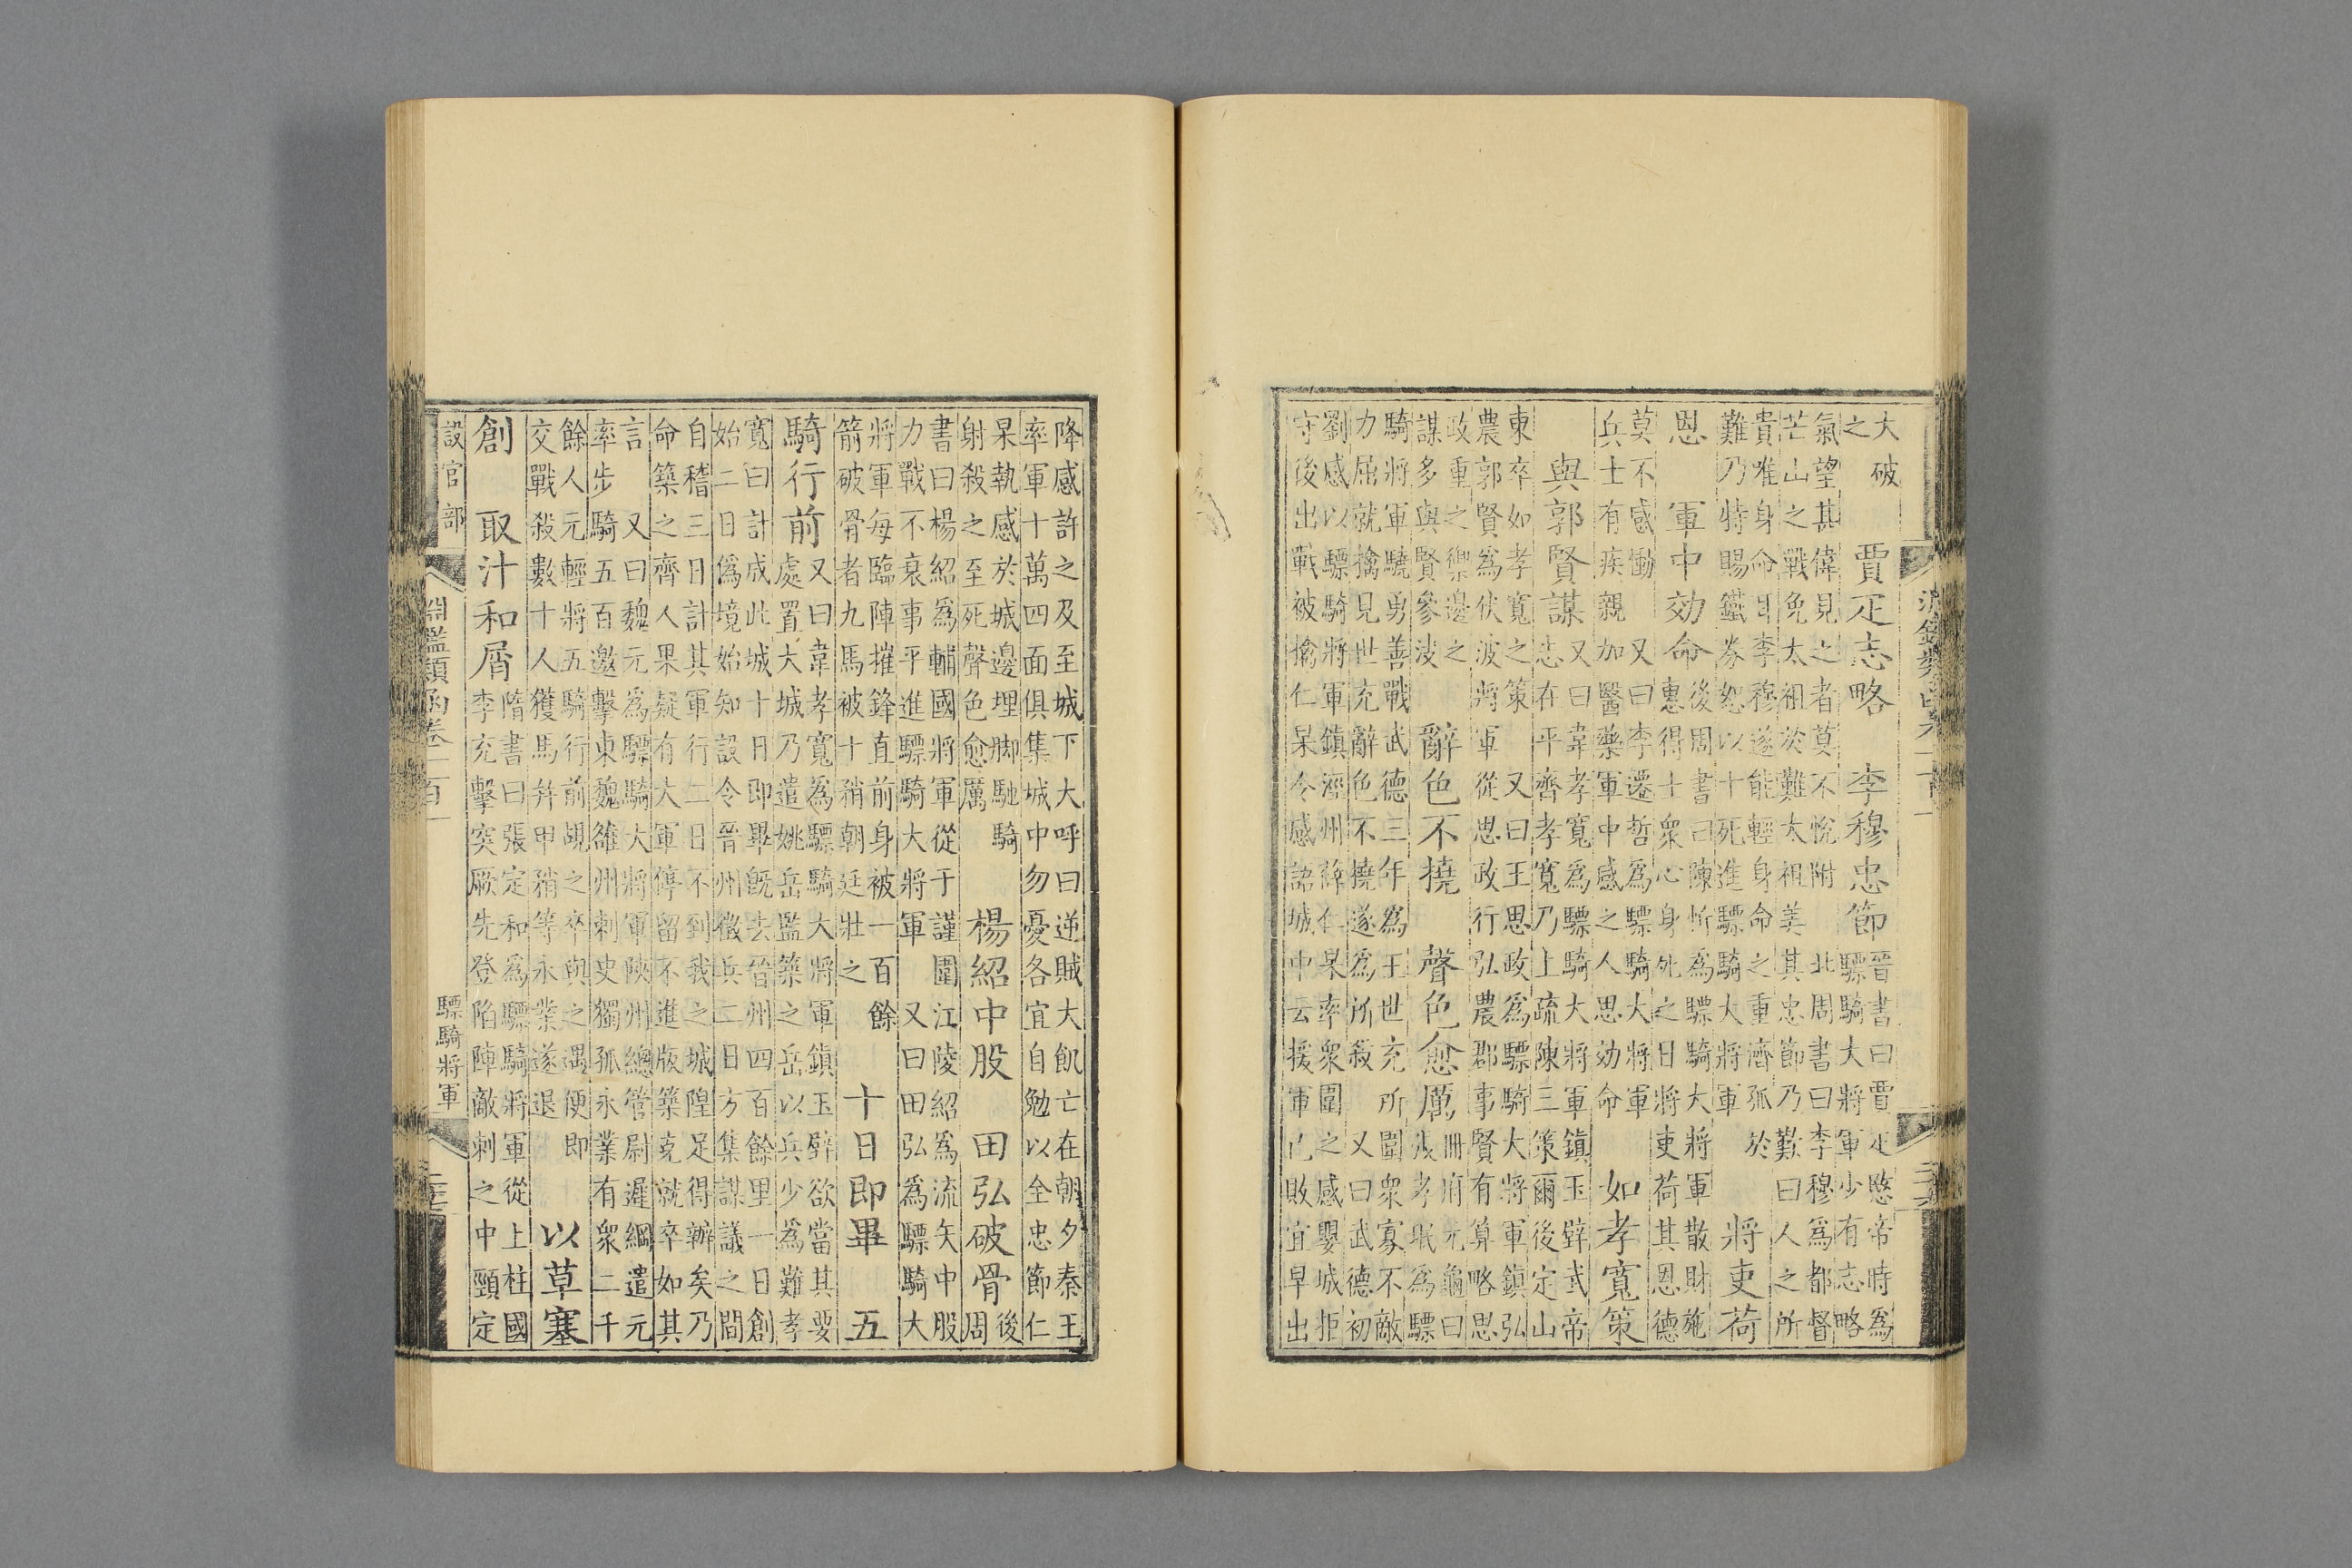 大破
之
賈疋志略 李穆忠節
晉書曰賈疋愍帝時為
驃騎大將軍少有志略
氣望其偉見之者莫不悅附 北周書曰李穆為都督
芒山之戰免太祖於難太祖美其忠節乃歎曰人之所
貴唯身命耳李穆遂能輕身命之重濟孤於
難乃特賜鐵券恕以十死進驃騎大將軍
將吏荷
恩 軍中効命
後周書曰陳忻為驃騎大將軍散財施
惠得士衆心身死之日將吏荷其恩德
莫不感慟 又曰李遷哲為驃騎大將軍
兵士有疾親加醫藥軍中感之人思効命
如孝寬策
與郭賢謀
又曰韋孝寬為驃騎大將軍鎮玉壁武帝
志在平齊孝寬乃上疏陳三策爾後定山
東卒如孝寬之策 又曰王思政為驃騎大將軍鎮弘
農郭賢為伏波將軍從思政行弘農郡事賢有算略思
政重之禦邊之
謀多與賢參決
辭色不撓 聲色愈厲
冊府元龜曰
張孝珉為驃
騎將軍驍勇善戰武德三年為王世充所圍衆寡不敵
力屈就擒見世充辭色不撓遂為所殺 又曰武德初
劉感以驃騎將軍鎮涇州薛仁杲率衆圍之感嬰城拒
守後出戰被擒仁杲令感語城中云援軍已敗宜早出
降感許之及至城下大呼曰逆賊大飢亡在朝夕秦王
率軍十萬四面俱集城中勿憂各宜自勉以全忠節仁
杲執感於城邊埋脚馳騎
射殺之至死聲色愈厲
楊紹中股 田弘破骨
後
周
書曰楊紹為輔國將軍從于謹圍江陵紹為流矢中股
力戰不衰事平進驃騎大將軍 又曰田弘為驃騎大
將軍每臨陣摧鋒直前身被一百餘
箭破骨者九馬被十矟朝廷壯之
十日即畢 五
騎行前
又曰韋孝寬為驃騎大將軍鎮玉壁欲當其要
處置大城乃遣姚岳監築之岳以兵少為難孝
寬曰計成此城十日即畢旣去晉州四百餘里一日創
始二日偽境始知設令晉州徵兵二日方集謀議之間
自稽三日計其軍行二日不到我之城隍足得辦矣乃
命築之齊人果疑有大軍停留不進版築克就卒如其
言 又曰魏元為驃騎大將軍陜州總管尉遲綱遣元
率步騎五百邀擊東魏雒州刺史獨孤永業有衆二千
餘人元輕將五騎行前覘之卒與之遇便即
交戰殺數十人獲馬并甲矟等永業遂退
以草塞
創 取汁和屑
隋書曰張定和為驃騎將軍從上柱國
李充擊突厥先登陷陣敵刺之中頸定
設官部
淵鑑類函卷一百一
驃騎將軍